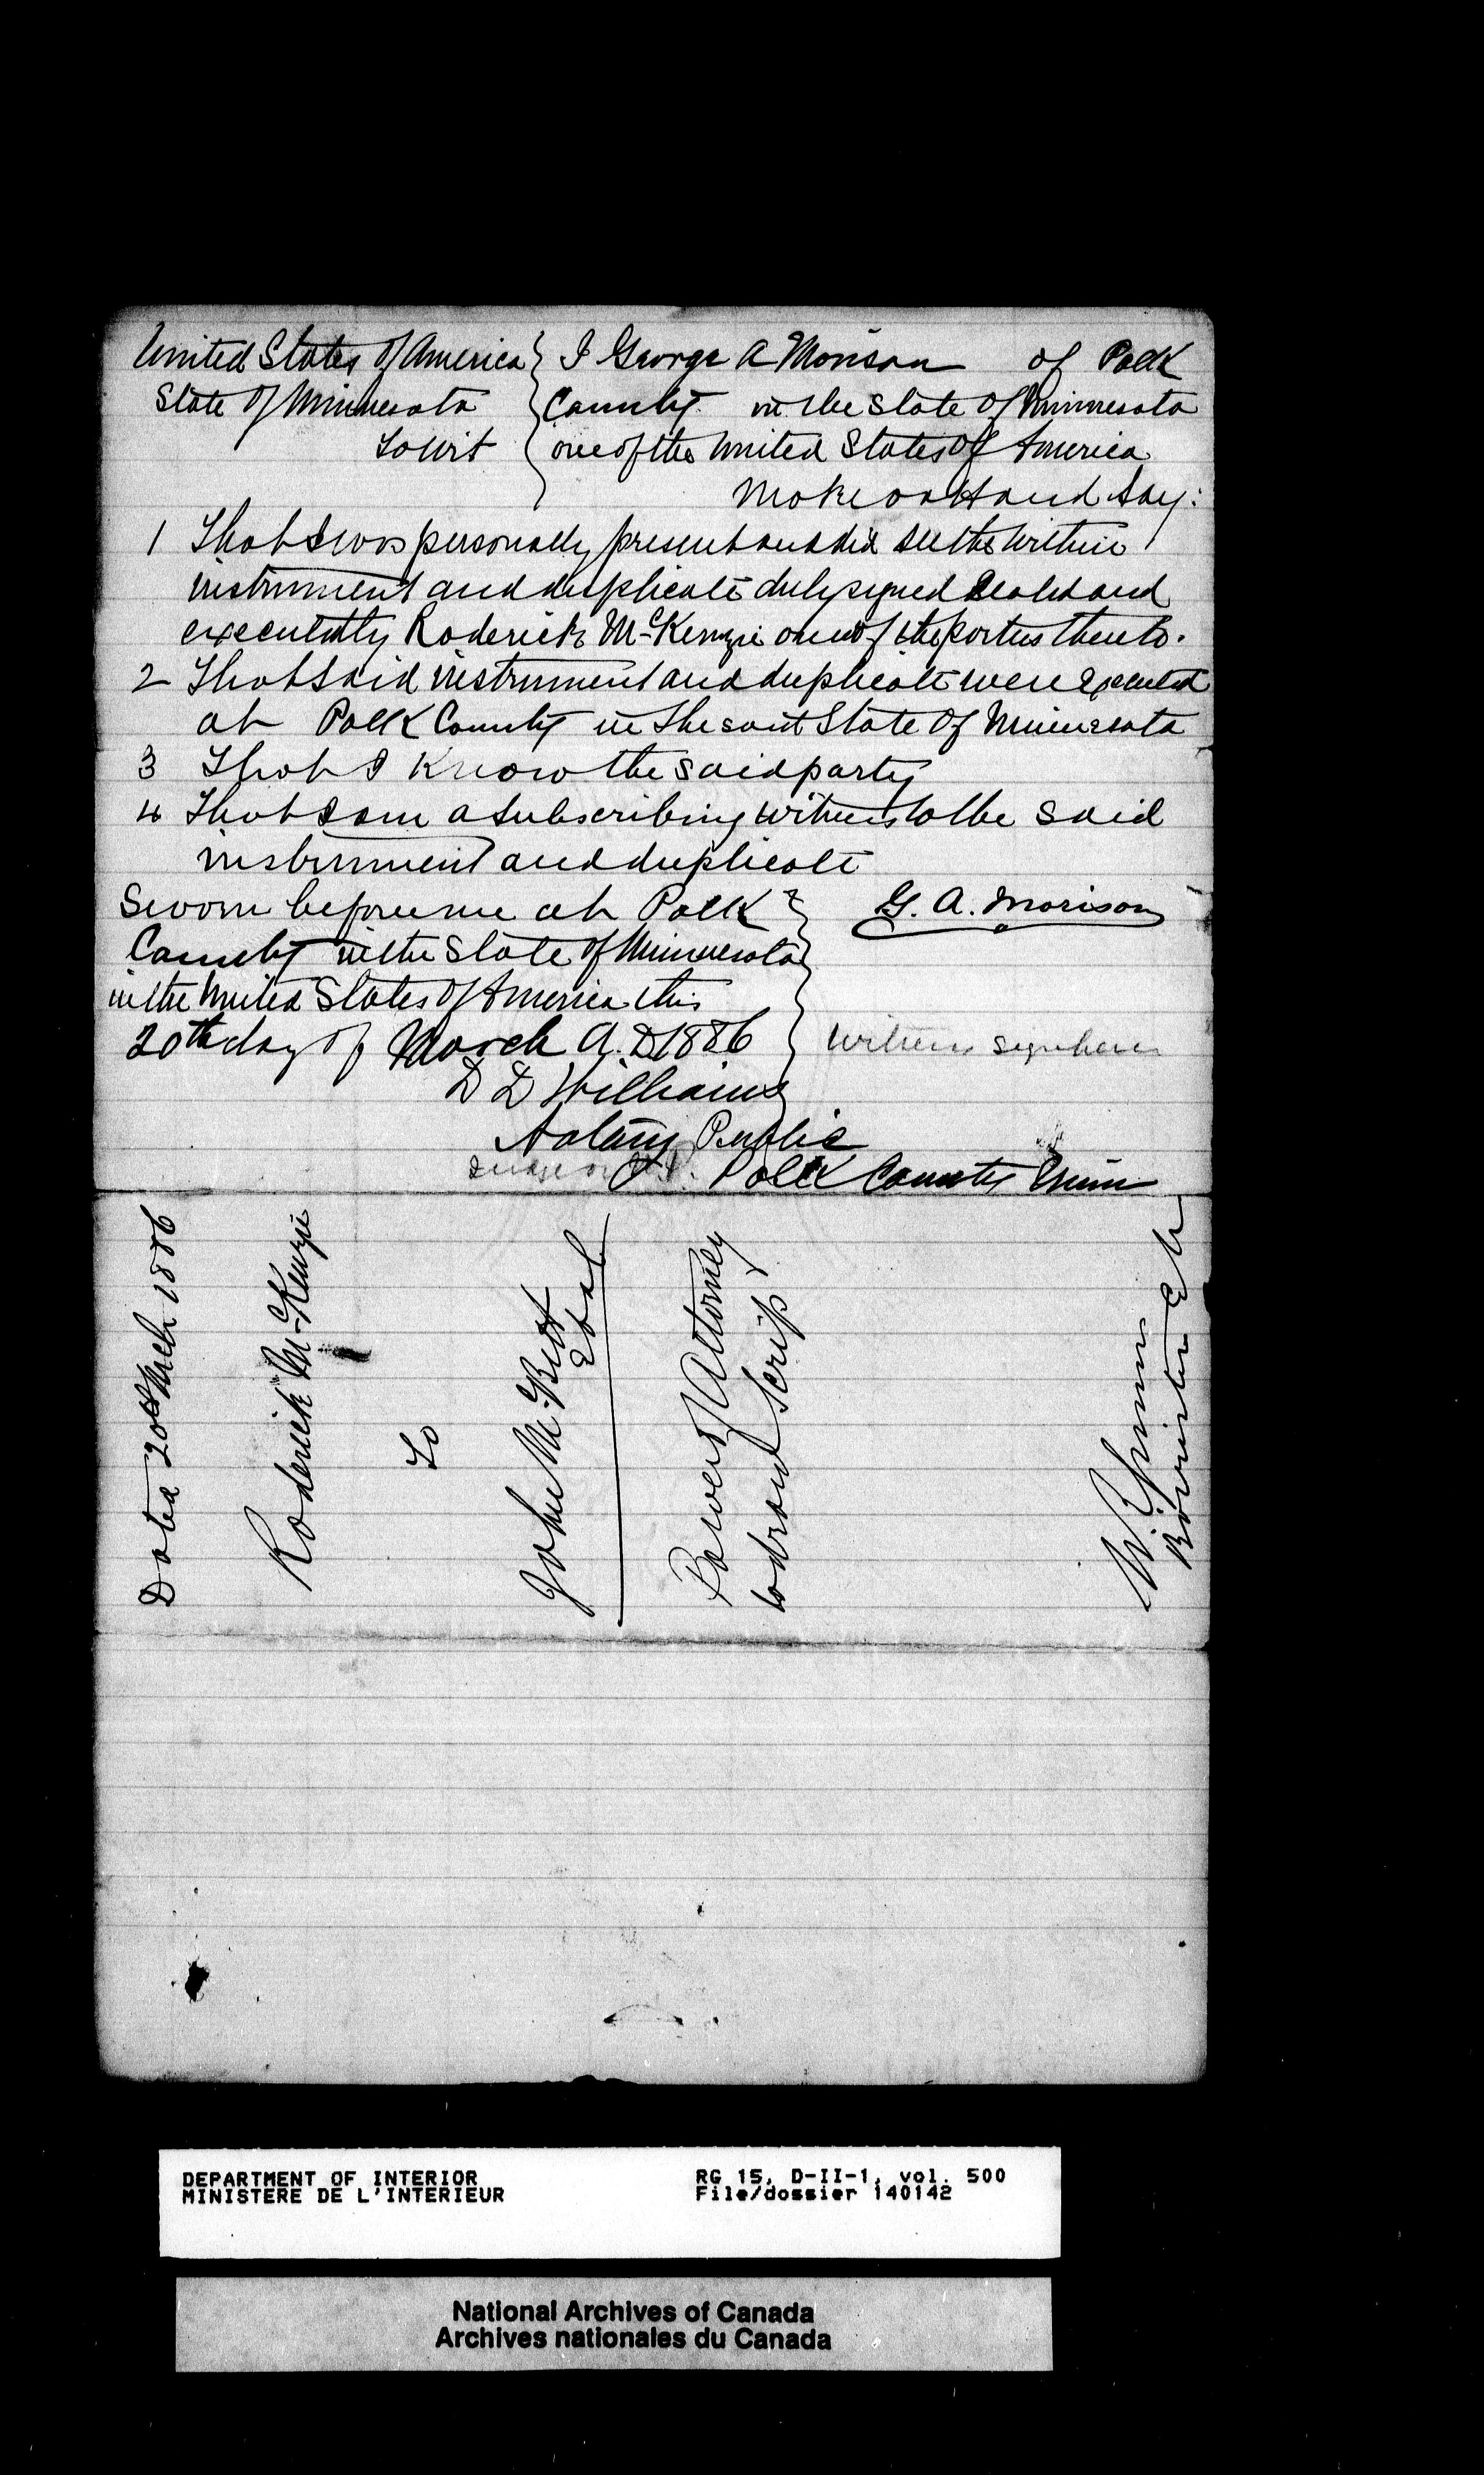 United States of America } I George A Morison of Polk
State of Minnesota } County in the State of Minnesota
To wit } one of the United States of America
Make oath and say:
1 That I was personally present and did see the within
instrument and duplicate duly signed sealed and
executed by Roderick McKenzie one of the parties thereto.
2 That said instrument and duplicate were executed
at Polk County in the said State of Minnesota
3 That I know the said party
4 That I am a subscribing witness to the said
instrument and duplicate
Sworn before me at Polk } G. A. Morison
County in the State of Minnesota
in the United States of America this
20th day of March A.D 1886 } Witness sign here
D D Williams
Notary Public
Polk County Minn
Dated 20th Mch 1886
Roderick McKenzie
To
John McBeth
Et al
Power of Attorney
to draw Scrip
DEPARTMENT OF INTERIOR
MINISTERE DE L'INTERIEUR
RG 15, D-II-1, vol. 500
File/dossier 140142
National Archives of Canada
Archives nationales du Canada